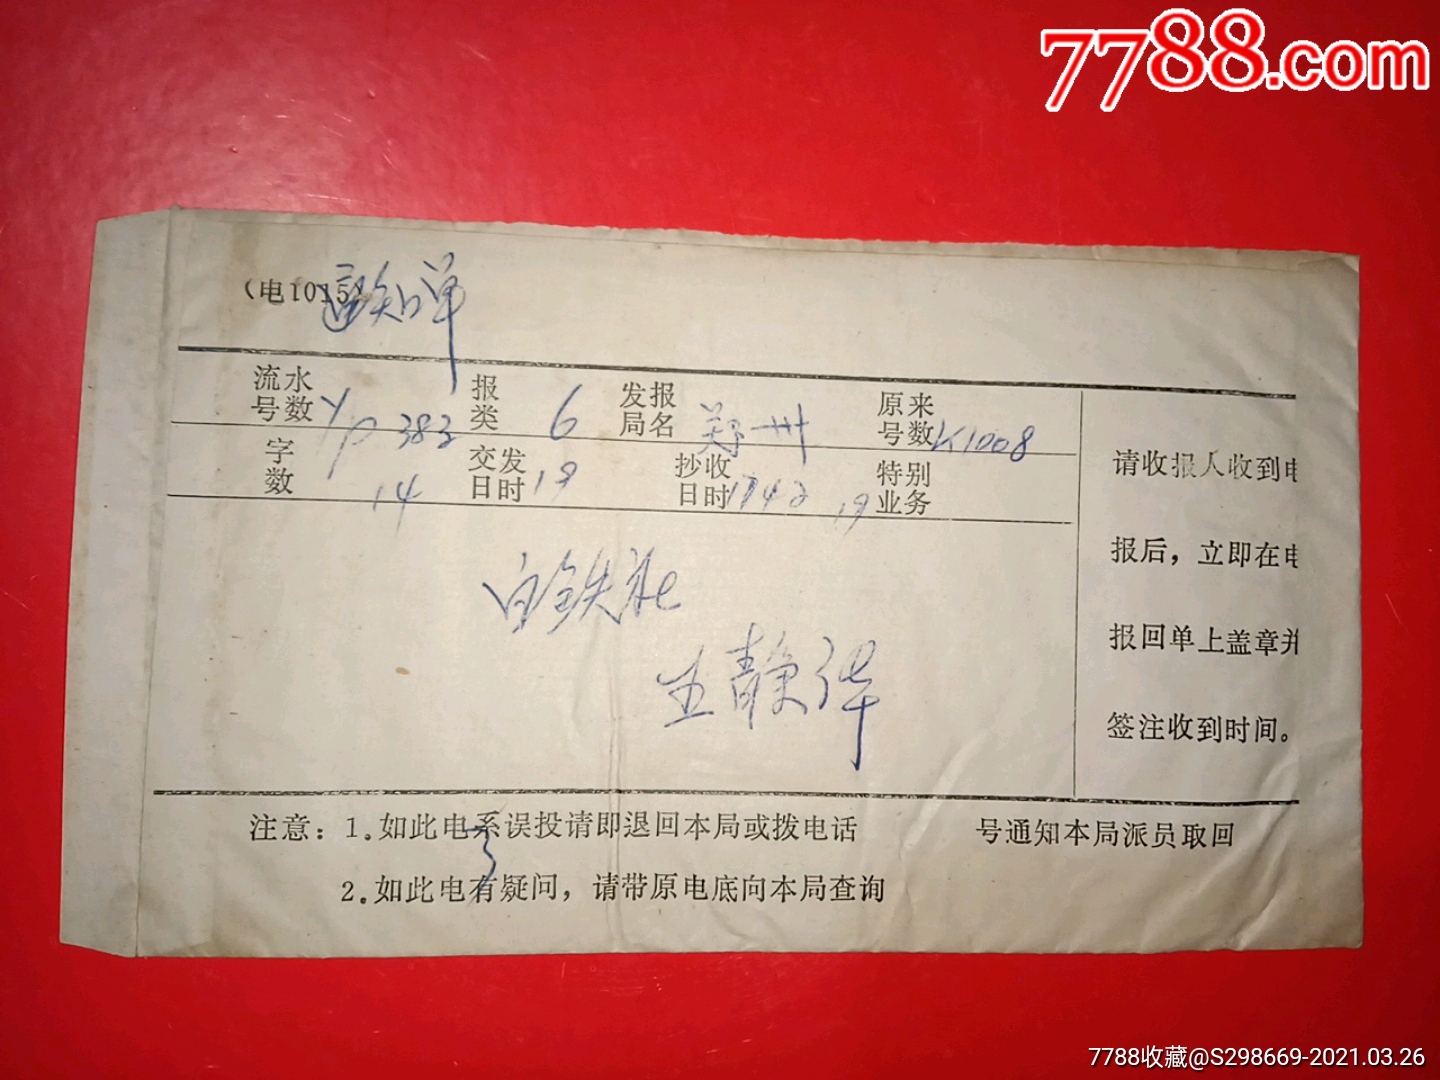 7788.com
(电1015)
通知单
流水号数 yp 383 报类 6 发报局名 郑州 原来号数 K1008
字数 14 交发日时 19 抄收日时 1742 19 特别业务
白铁社
王静华
请收报人收到电
报后，立即在电
报回单上盖章并
签注收到时间。
注意：1.如此电系误投请即退回本局或拨电话 号通知本局派员取回
2.如此电有疑问，请带原电底向本局查询
7788收藏@S298669-2021.03.26